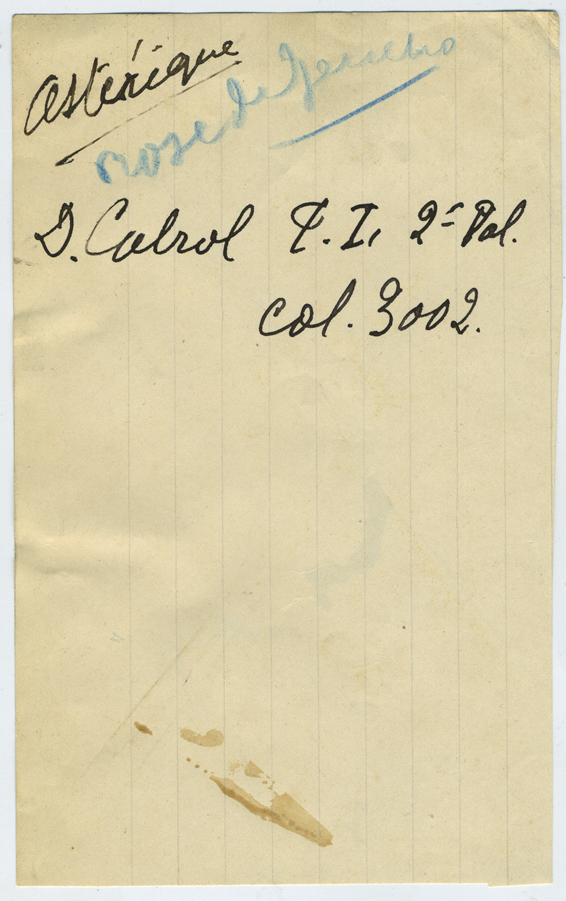 astérique
rose de Jericho
D. Cabrol T. I, 2e Pal.
col. 3002.